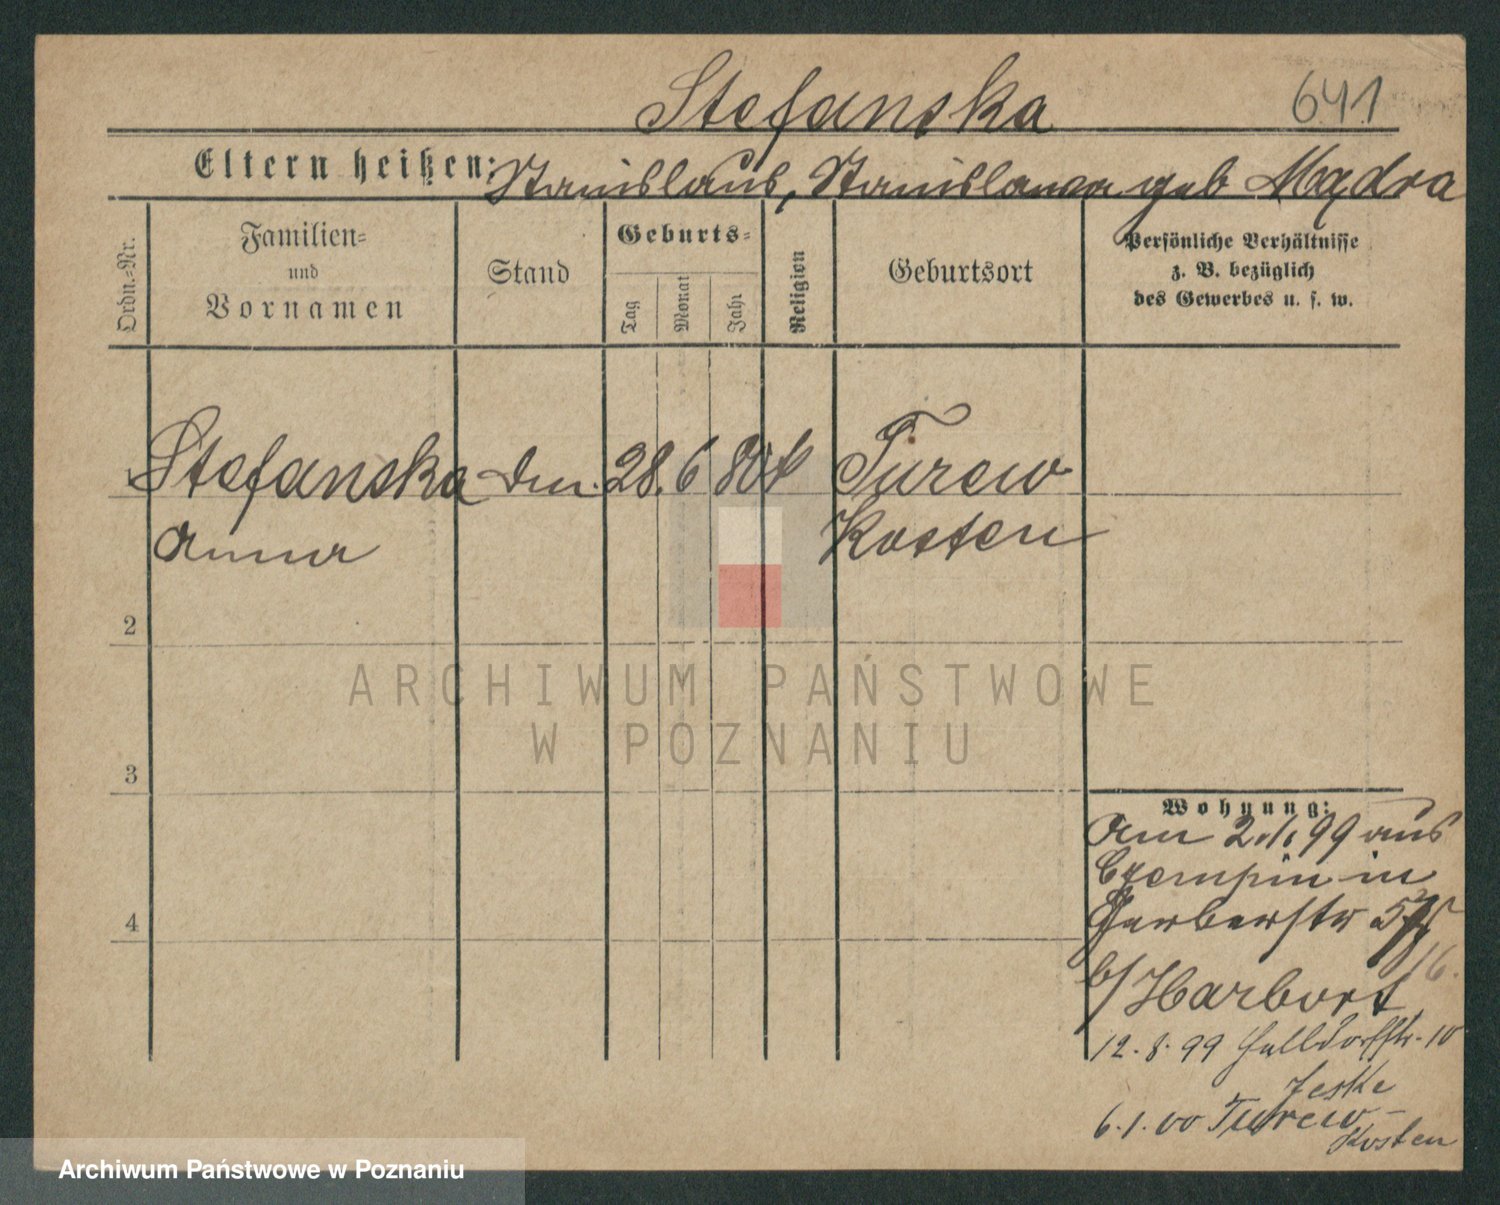 Stefanska 641
Eltern heißen: Stanislaus, Stanislawa geb Mądra
Ordn.-Nr.
Familien-
und
Vornamen
Stand
Geburts-
Tag
Monat
Jahr
Religion
Geburtsort
Persönliche Verhältnisse
z. B. bezüglich
des Gewerbes u. s. w.
Stefanska 28. 6 80 k Turew
Anna Kosten
2
ARCHIWUM PAŃSTWOWE
W POZNANIU
3
Wohnung:
Am 2./1 99 aus
Czempin in
Gerberstr
16.
b/ Harbort
12. 8. 99 10
Jeske
6. 1. 00 Turew-
Kosten
4
Archiwum Państwowe w Poznaniu